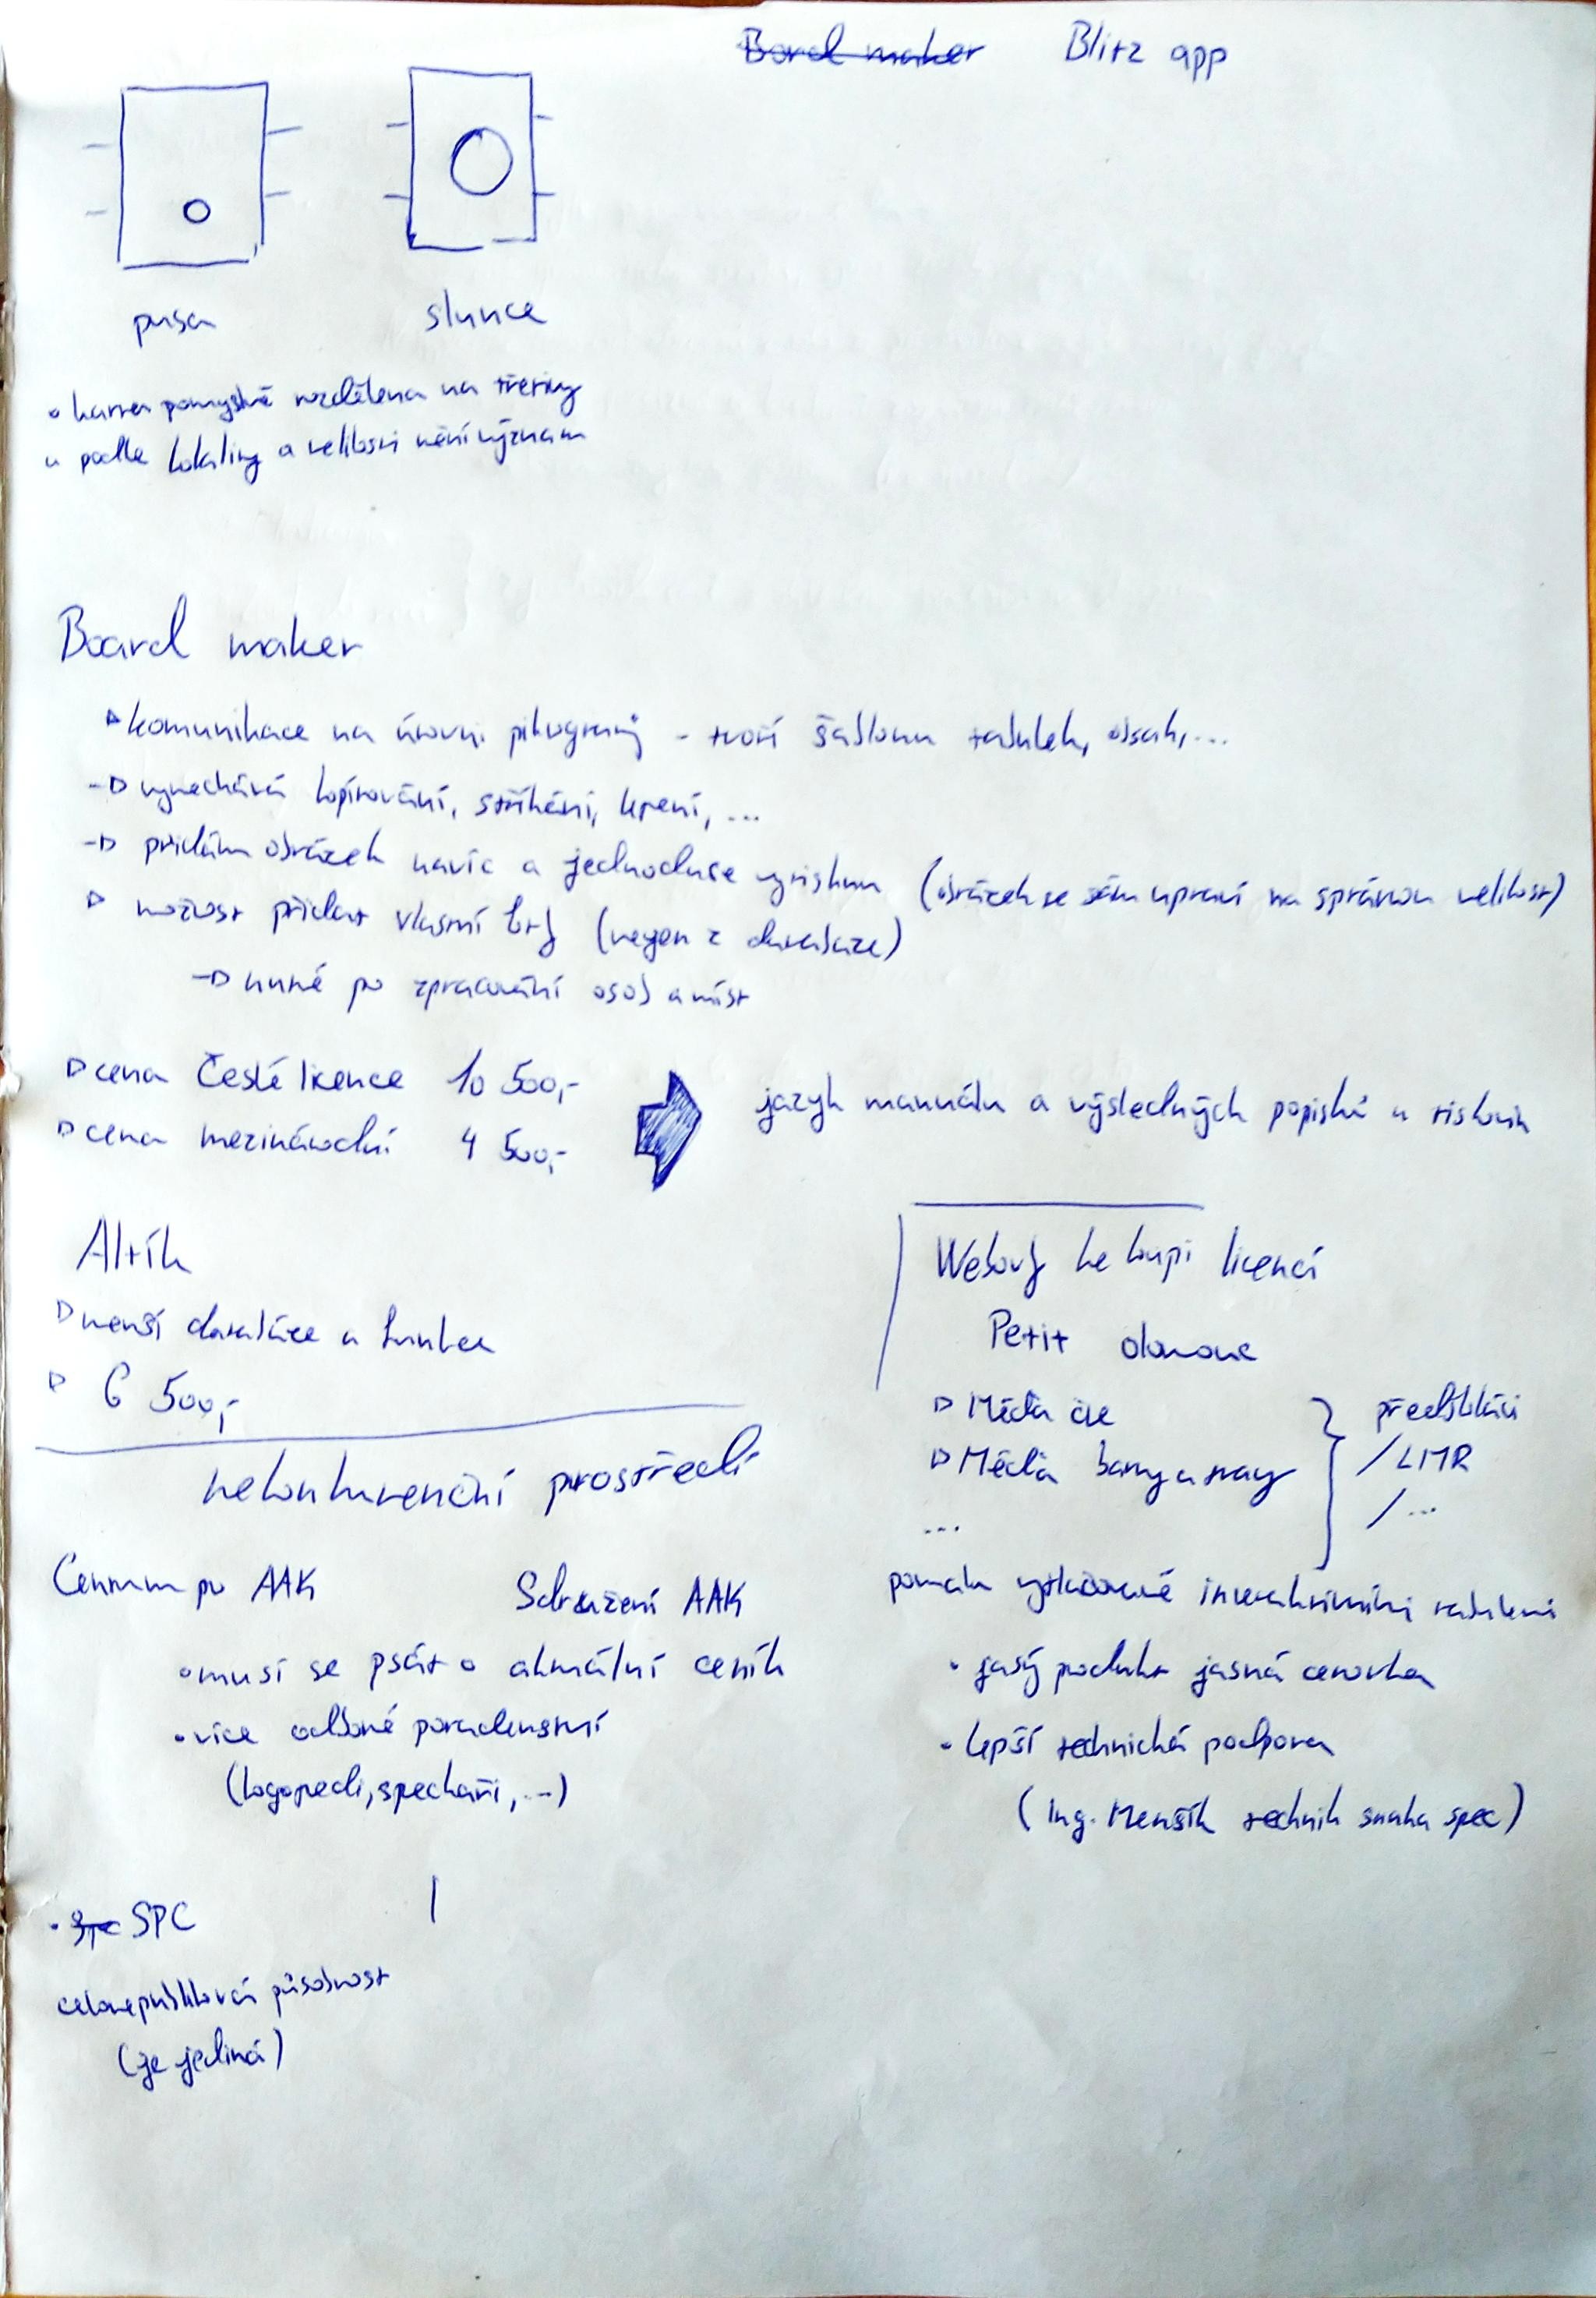 Bord maker Blitz app
pusa slunce
karta pomyslně rozdělena na třetiny
podle lokality a velikosti mění význam
Board maker
komunikace na úrovni piktogramů - tvoří šablonu tabulek, obsah,...
vynechává kopírování, stříhání, lepení, ...
přidám obrázek navíc a jednoduše vytisknu (obrázek se sám upraví na správnou velikost)
možnost přidat vlastní fotky (nejen z databáze)
nutné po zpracování osob a míst
cena České licence 10 500,-
cena mezinárodní 4 500,-
jazyk manuálu a výsledných popisků u tiskovin
Altík
menší databáze a funkce
6 500,-
nekonkurenční prostředí
Centrum pro AAK Sdružení AAK
musí se psát o aktuální ceník
více odborné poradenství
(logopedi, speckaři, ...)
spc SPC
celorepubliková působnost
(je jediná)
Weby ke koupi licencí
Petit
Méďa čte
Méďa barvy a tvary
...
předškoláci
/LMR
/...
pomalu vytlačované interaktivními tabulemi
jasý produkt jasná cenovka
lepší technická podpora
(ing. Menšík technik snaha spec)